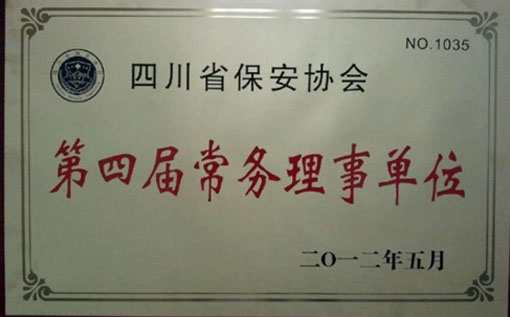 NO.1035
四川省保安协会
第四届常务理事单位
二〇一二年五月